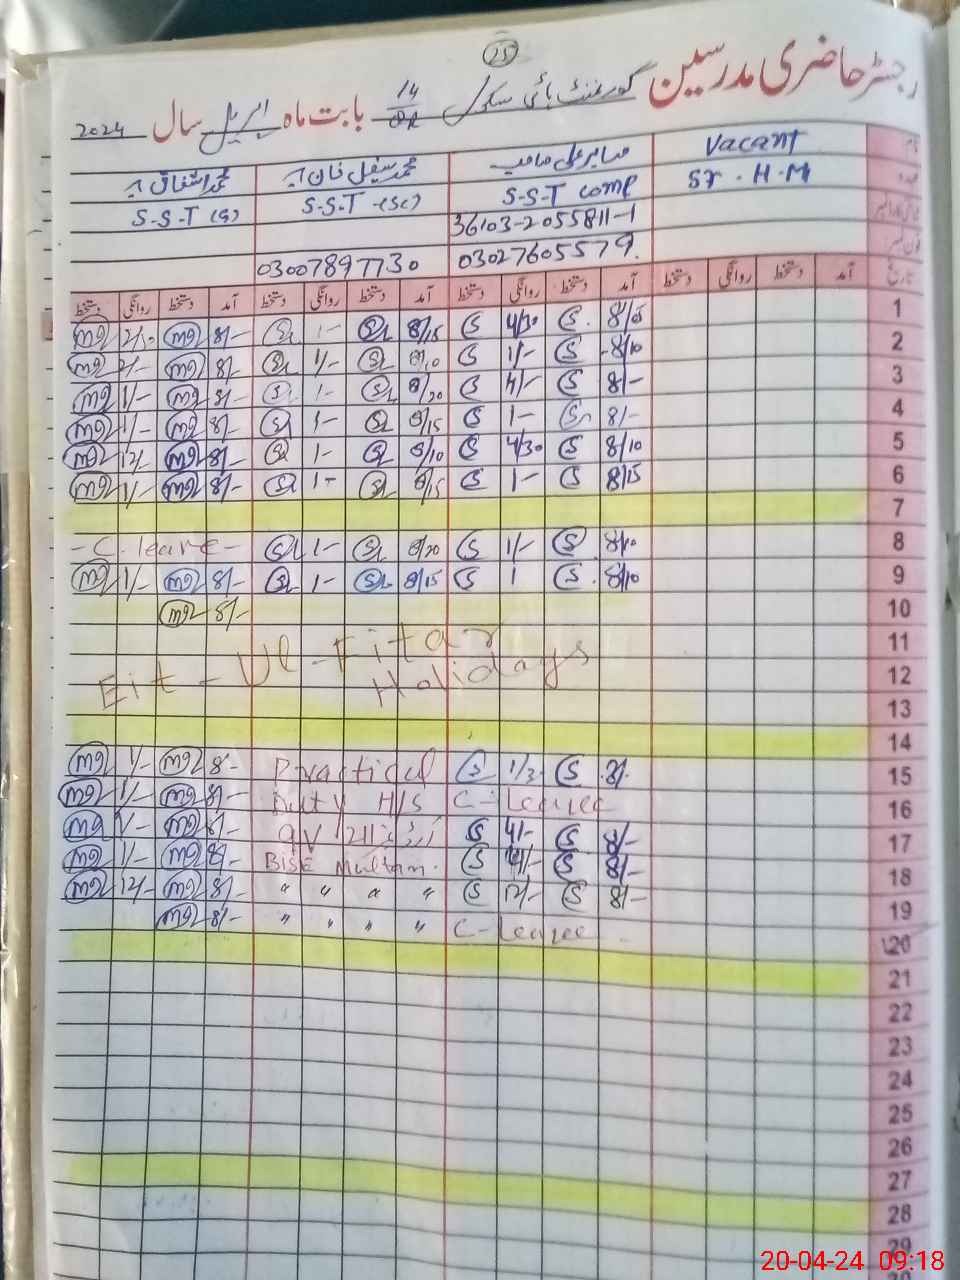 25
رجسٹر حاضری مدرسین گورنمنٹ ہائی سکول 14 بابت ماہ اپریل سال 2024
Vacant صابر علی صاحب
Sr . H . M S-S-T Comp S-S-T (Sc) S-S-T (G)
36103-2055811-1
03027605579. 03007897730
تاریخ آمد دستخط روانگی دستخط آمد دستخط روانگی دستخط آمد دستخط روانگی دستخط آمد دستخط روانگی دستخط
mg 8/- mg S 1/- S 8/15 S 4/30 S 8/5 1
mg 2/- mg 8/- 1/- 8/10 S 1/- S 8/10 2
mg 1/- mg 8/- 1- 8/20 S 4/- S 8/- 3
mg 1/- mg 8/- 1- 8/15 S 1- S 8/- 4
mg 12/- mg 8/- 1- 8/10 S 4/30 S 8/10 5
mg 1/- mg 8/- 1- 8/15 S 1- S 8/15 6
7
-C. leave- 1- 8/20 S 1/- S 8/10 8
mg 1/- mg 8/- 1- 8/15 S 1 S 8/10 9
mg 8/- 10
11
Eit - Ul - Fitar
Holidays
12
13
14
mg 1/- mg 8- Practical S 1/3 S 8/- 15
mg 1/- mg 8/- Duty H/S C-Leave 16
mg 1/- mg 8/- S 4/- S 8/- 17
mg 1/- mg 8/- Bise Multan. S S 8/- 18
mg 12/- mg 8/- " " " " S 12/- S 8/- 19
mg 8/- " " " " C-Leave 20
21
22
23
24
25
26
27
28
29
20-04-24 09:18